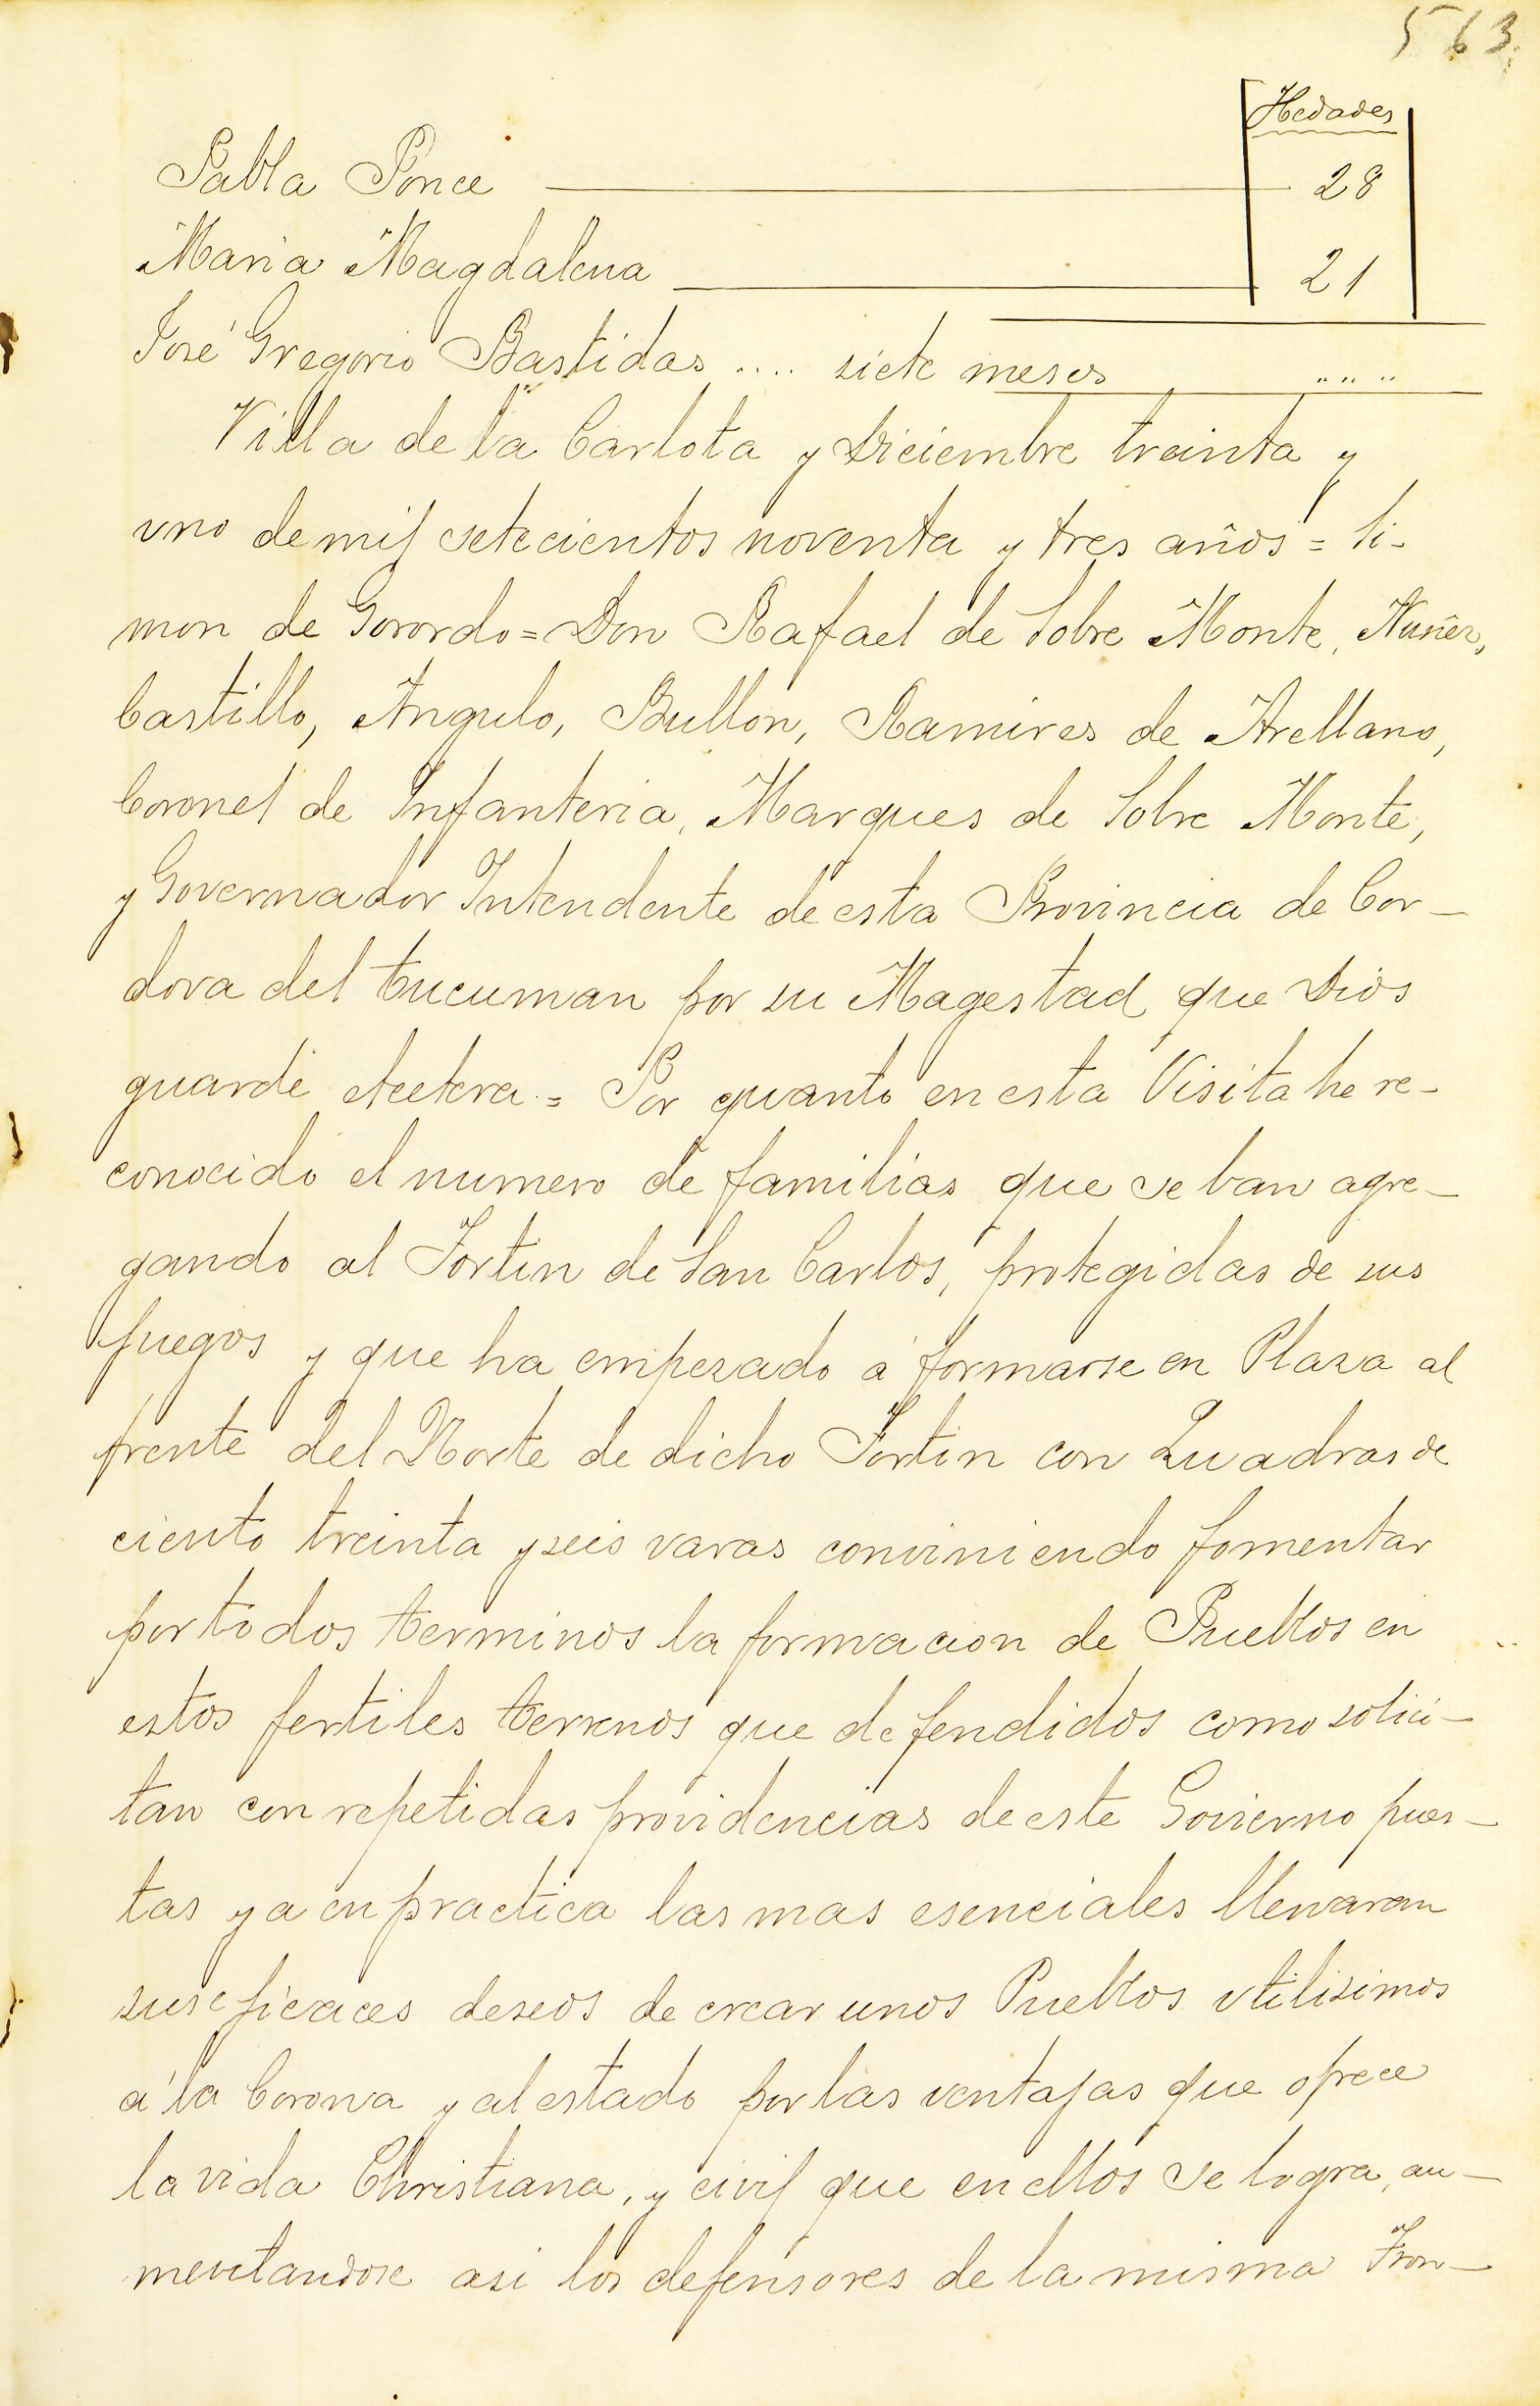 563.
Hedades
Pabla Ponce 28
Maria Magdalena 21
José Gregorio Bastidas .... siete meses ....
Villa de la Carlota y Diciembre treinta y
uno de mil setecientos noventa y tres años = Si-
mon de Gorordo = Don Rafael de Sobre Monte, Nuñez,
Castillo, Angulo, Bullon, Ramires de Arellano,
Coronel de Infanteria, Marques de Sobre Monte,
y Governador Intendente de esta Provincia de Cor-
dova del Tucuman por su Magestad que Dios
guarde etcetera = Por quanto en esta Visita he re-
conocido el numero de familias que se ban agre-
gando al Fortin de San Carlos, protegidas de sus
fuegos y que ha empezado á formarse en Plaza al
frente del Norte de dicho Fortin con Quadras de
ciento treinta y seis varas conviniendo fomentar
por todos terminos la formacion de Pueblos en
estos fertiles terrenos que defendidos como solici-
tan con repetidas providencias de este Govierno pues-
tas ya en practica las mas esenciales llenaran
sus eficaces deseos de crear unos Pueblos utilisimos
á la Corona y al estado por las ventajas que ofrece
la vida Christiana, y civil que en ellos se logra, au-
mentandose asi los defensores de la misma Fron-